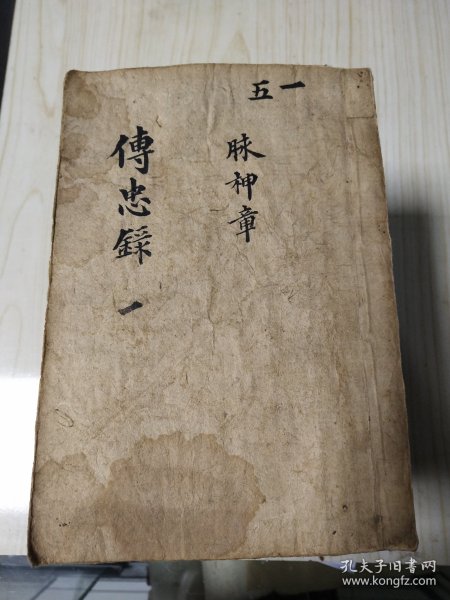 一五
脉神章
傳忠錄 一
孔夫子旧书网
www.kongfz.com